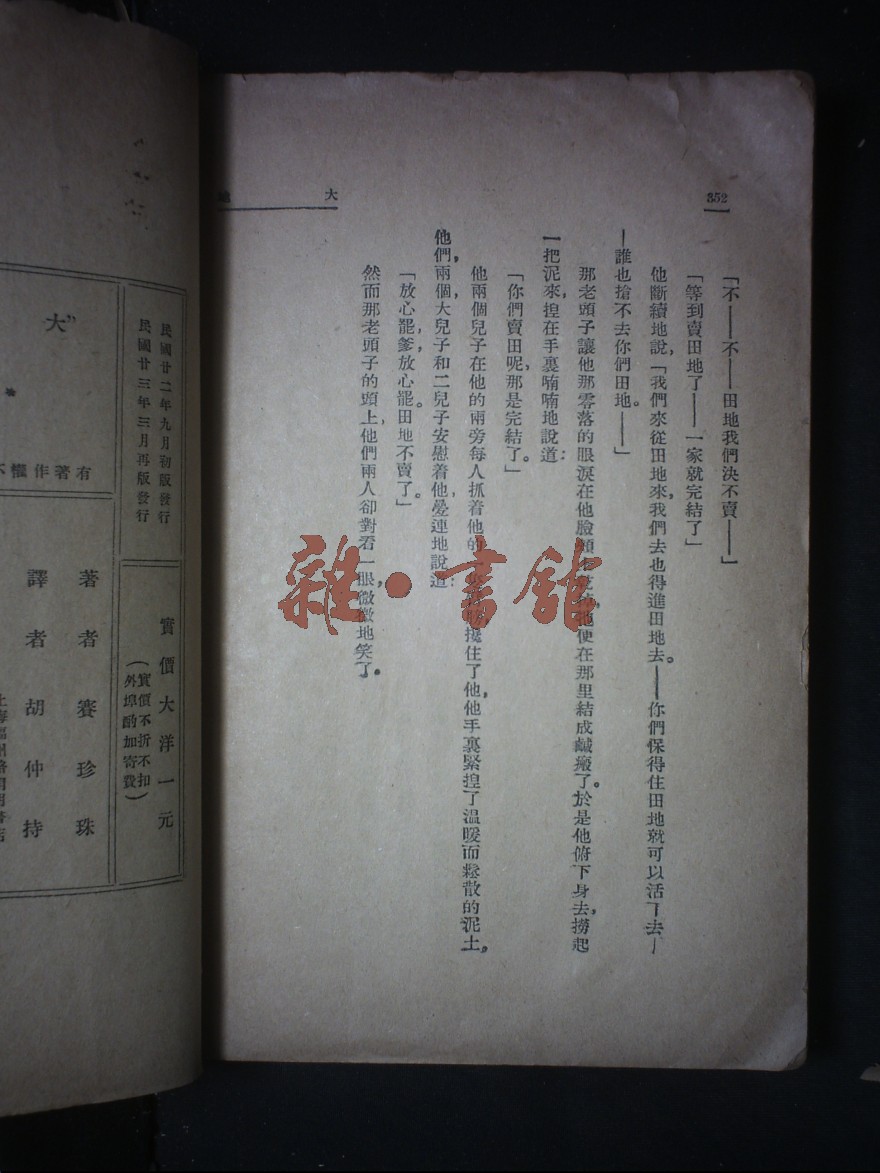 352
大
「不——不——田地我們決不賣——」
「等到賣田地了——一家就完結了」
他斷續地說，「我們來從田地來，我們去也得進田地去。——你們保得住田地就可以活下去—
—誰也搶不去你們田地。——」
那老頭子讓他那零落的眼淚在他臉頰便在那里結成鹹瘢了。於是他俯下身去，撈起
一把泥來，揑在手裏喃喃地說道：
「你們賣田呢，那是完結了。」
他兩個兒子在他的兩旁每人抓着他的攙住了他，他手裏緊揑了溫暖而鬆散的泥土。
他們，兩個，大兒子和二兒子安慰着他，疊連地說道：
「放心罷，爹，放心罷。田地不賣了。」
然而那老頭子的頭上，他們兩人卻對看一眼，微微地笑了。
雜·書館
大”
民國廿二年九月初版發行
民國廿三年三月再版發行
有著作權不
實價大洋一元
（實價不折不扣
外埠酌加寄費）
著者賽珍珠
譯者胡仲持